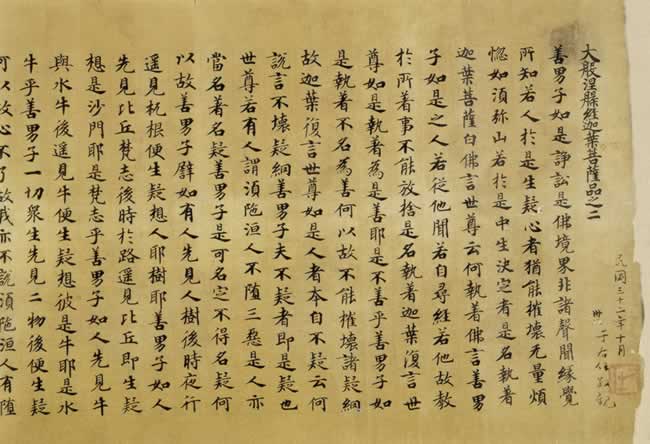 民國三十二年十月
于右任敬觀
大般涅槃經迦葉菩薩品之二
善男子如是諍訟是佛境界非諸聲聞緣覺
所知若人於是生疑心者猶能摧壞无量煩
惱如須弥山若於是中生決定者是名執著
迦葉菩薩白佛言世尊云何執著佛言善男
子如是之人若從他聞若自尋經若他故教
於所著事不能放捨是名執著迦葉復言世
尊如是執著為是善耶是不善乎善男子如
是執著不名為善何以故不能摧壞諸疑網
故迦葉復言世尊如是人者本自不疑云何
說言不壞疑網善男子夫不疑者即是疑也
世尊若有人謂須陁洹人不墮三惡是人亦
當名著名疑善男子是可名定不得名疑何
以故善男子譬如有人先見人樹後時夜行
遥見杌根便生疑想人耶樹耶善男子如人
先見比丘梵志後時於路遥見比丘即生疑
想是沙門耶是梵志乎善男子如人先見牛
與水牛後遥見牛便生疑想彼是牛耶是水
牛乎善男子一切衆生先見二物後便生疑
以故心不了故我亦不說須陁洹人有墮